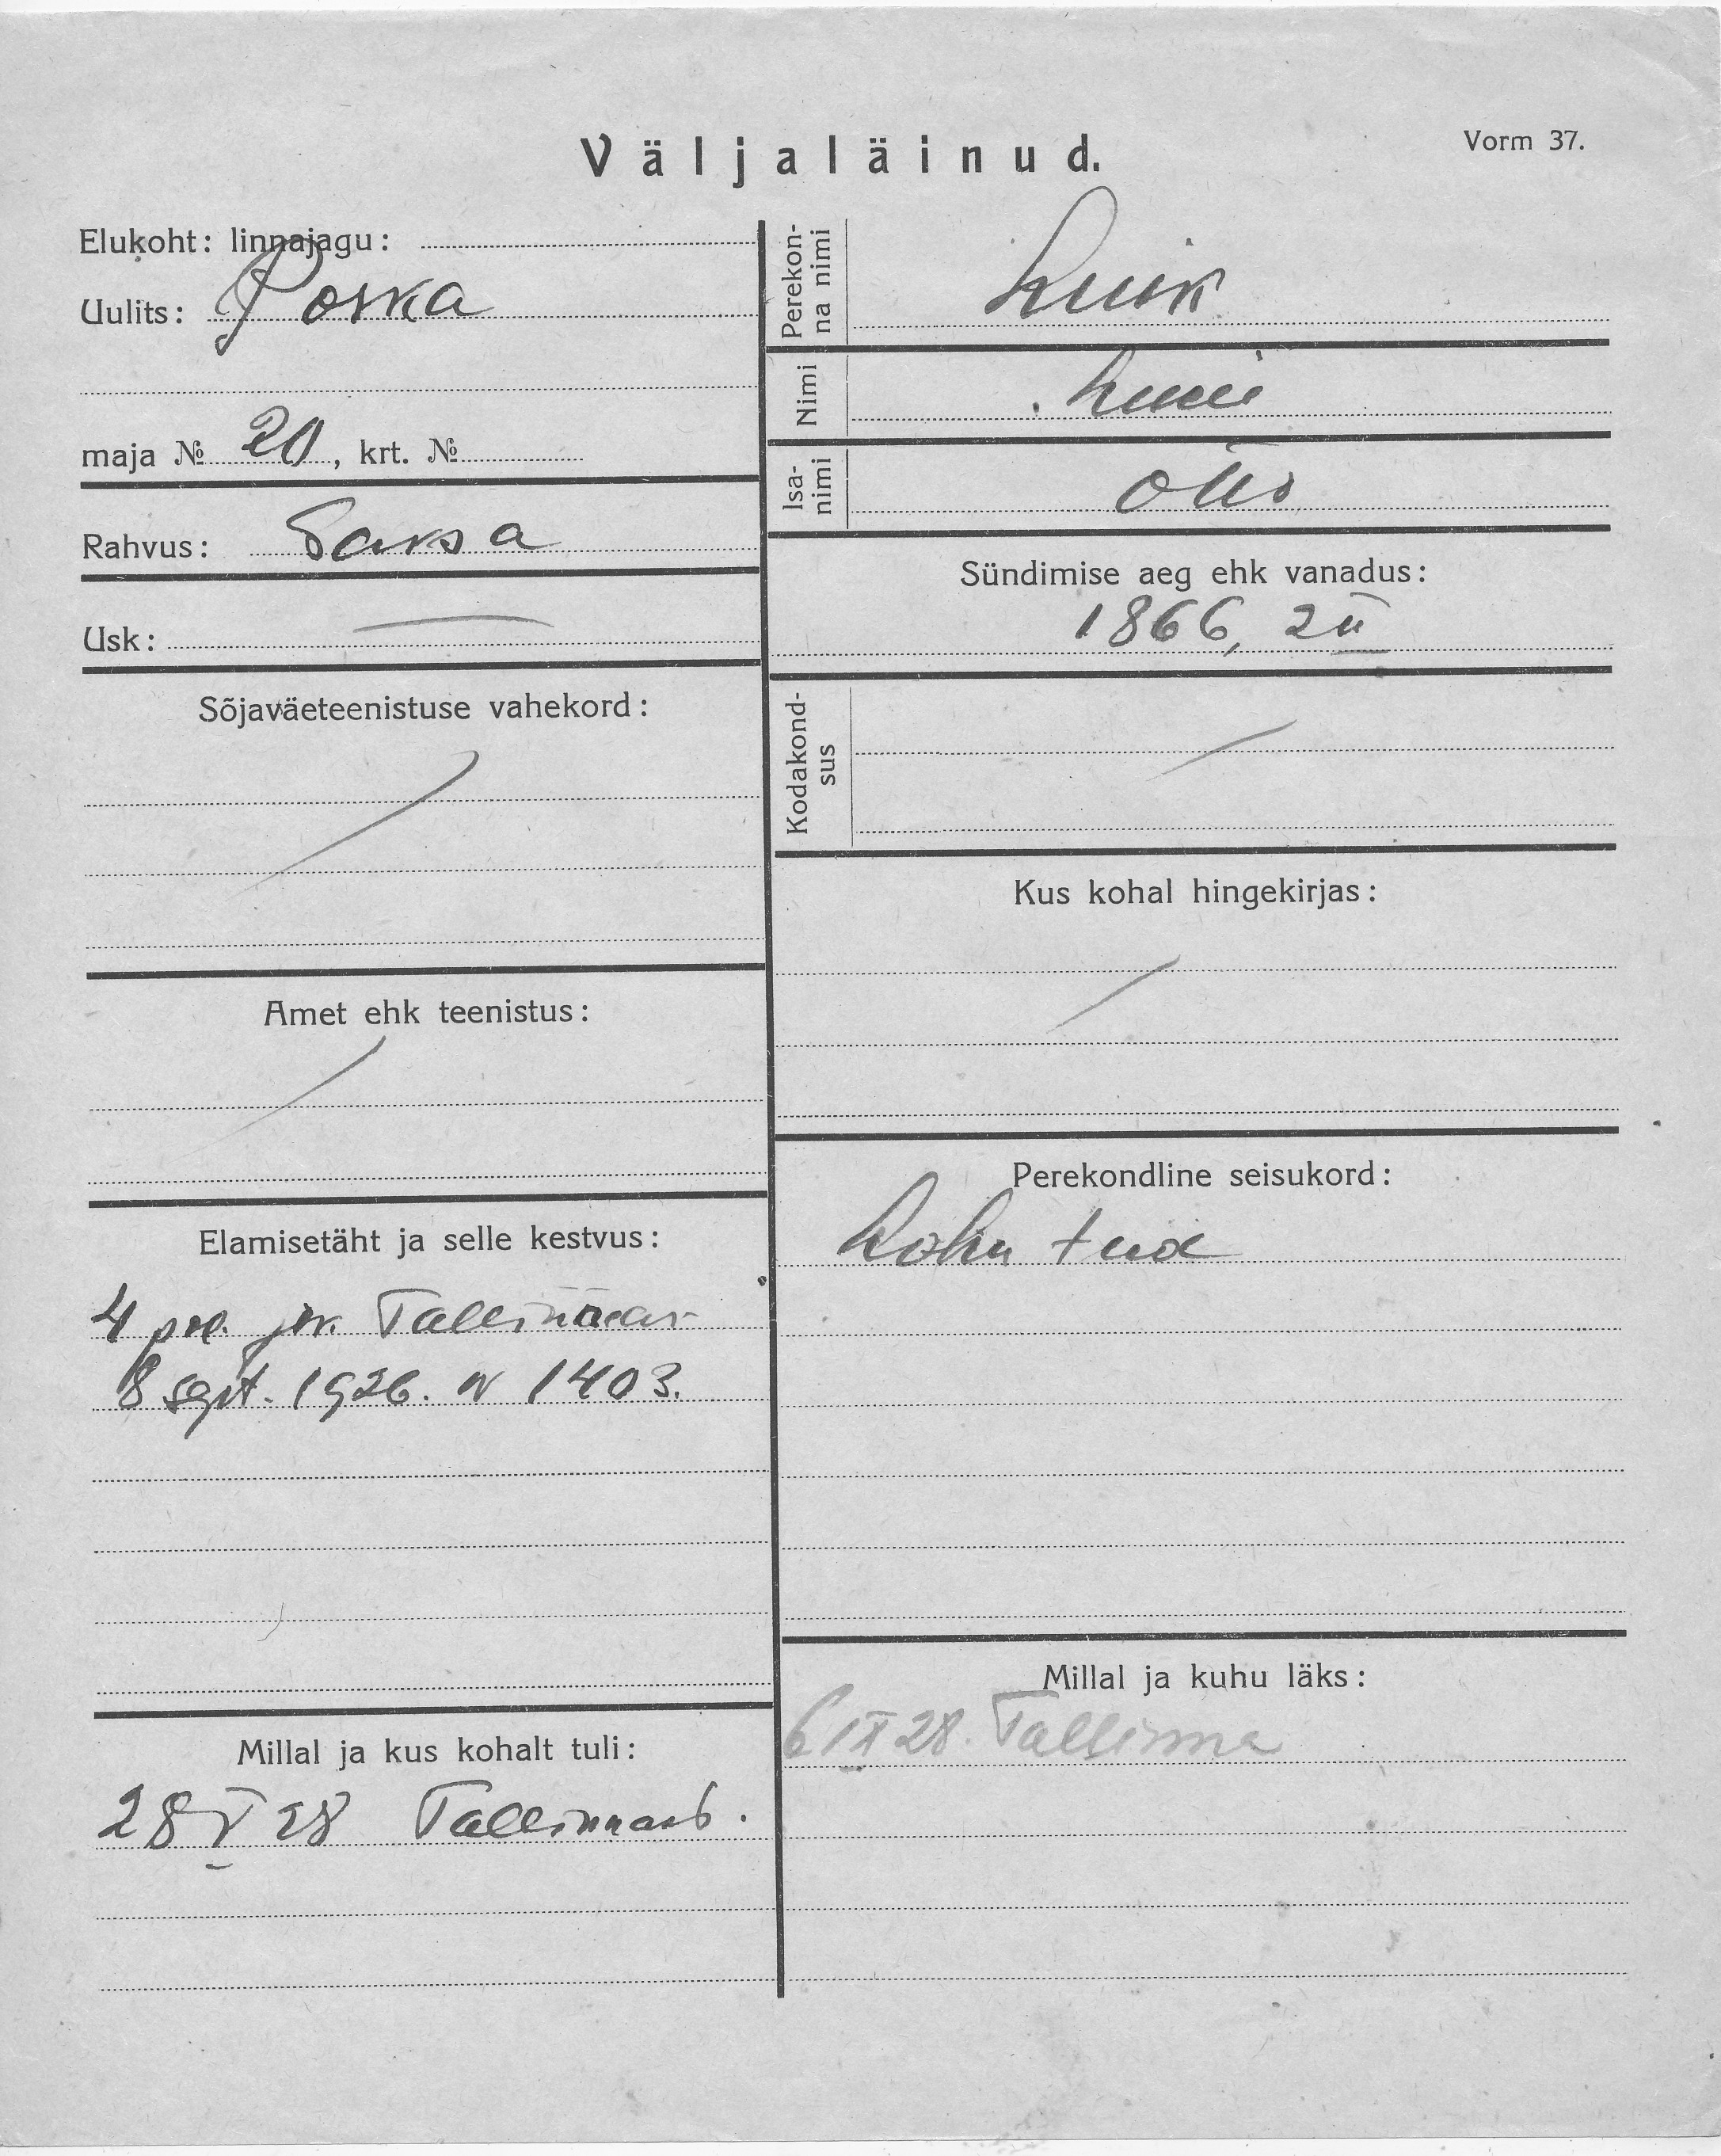 Väljaläinud.
Vorm 37.
Elukoht: linnajagu:
Uulits: Poska
maja № 20, krt. №
Rahvus: Saksa
Usk: —
Sõjaväeteenistuse vahekord:
Amet ehk teenistus:
Elamisetäht ja selle kestvus:
4 pol. jsk. Tallinnas
8 sept. 1926. N 1403.
Millal ja kus kohalt tuli:
28 V 28 Tallinnast.
Perekonna nimi Luik
Nimi
Isanimi Otto
Sündimise aeg ehk vanadus:
1866, 2 II
Kodakondsus
Kus kohal hingekirjas:
Perekondline seisukord:
Millal ja kuhu läks:
6 IX 28. Tallinna